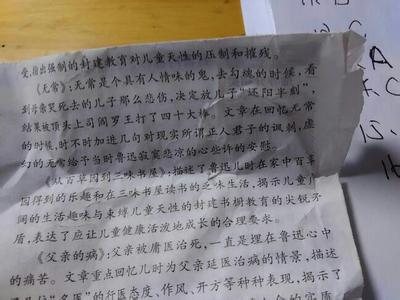 受,指出强制的封建教育对儿童天性的压制和摧残。
《无常》:无常是个具有人情味的鬼,去勾魂的时候,看
到母亲哭死去的儿子那么悲伤,决定放儿子“还阳半刻”,
结果被顶头上司阎罗王打了四十大棒。文章在回忆无常
的时候,时不时加进几句对现实所谓正人君子的讽刺,虚
幻的无常给予当时鲁迅寂寞悲凉的心些许的安慰。
《从百草园到三味书屋》:描述了鲁迅儿时在家中百草
园得到的乐趣和在三味书屋读书的乏味生活,揭示儿童广
阔的生活趣味与束缚儿童天性的封建书塾教育的尖锐矛
盾,表达了应让儿童健康活泼地成长的合理要求。
《父亲的病》:父亲被庸医治死,一直是埋在鲁迅心中
的痛苦。文章重点回忆儿时为父亲延医治病的情景,描述
几位“名医”的行医态度、作风、开方等种种表现,揭示了
A
C
15.
16